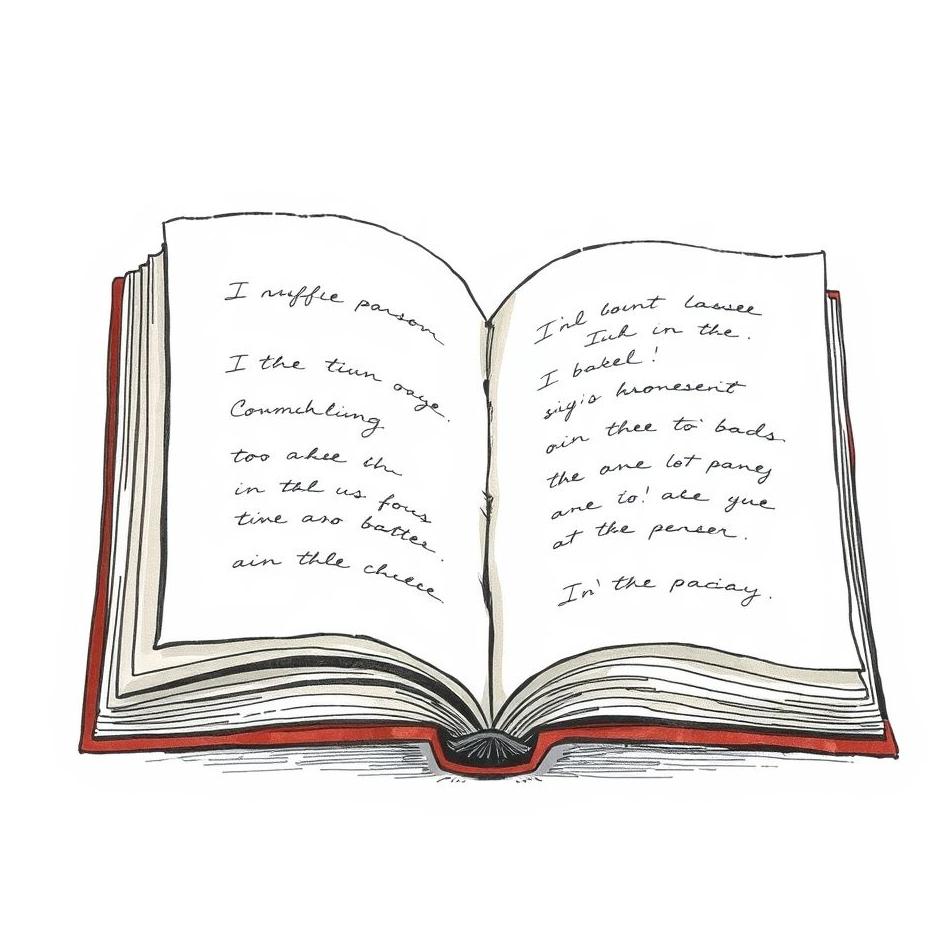 I ruffie parson
I the tiun oage.
Counchling
too ahee ihu
in thl us fous
tine aro batter.
ain thle cheece.
I'nl bount lausee
Iuh in the.
I bakel!
siyis hronesenit
oin thee to bads.
the ane lot paney
ane to! ale yue
at the penser.
In' the paciay.